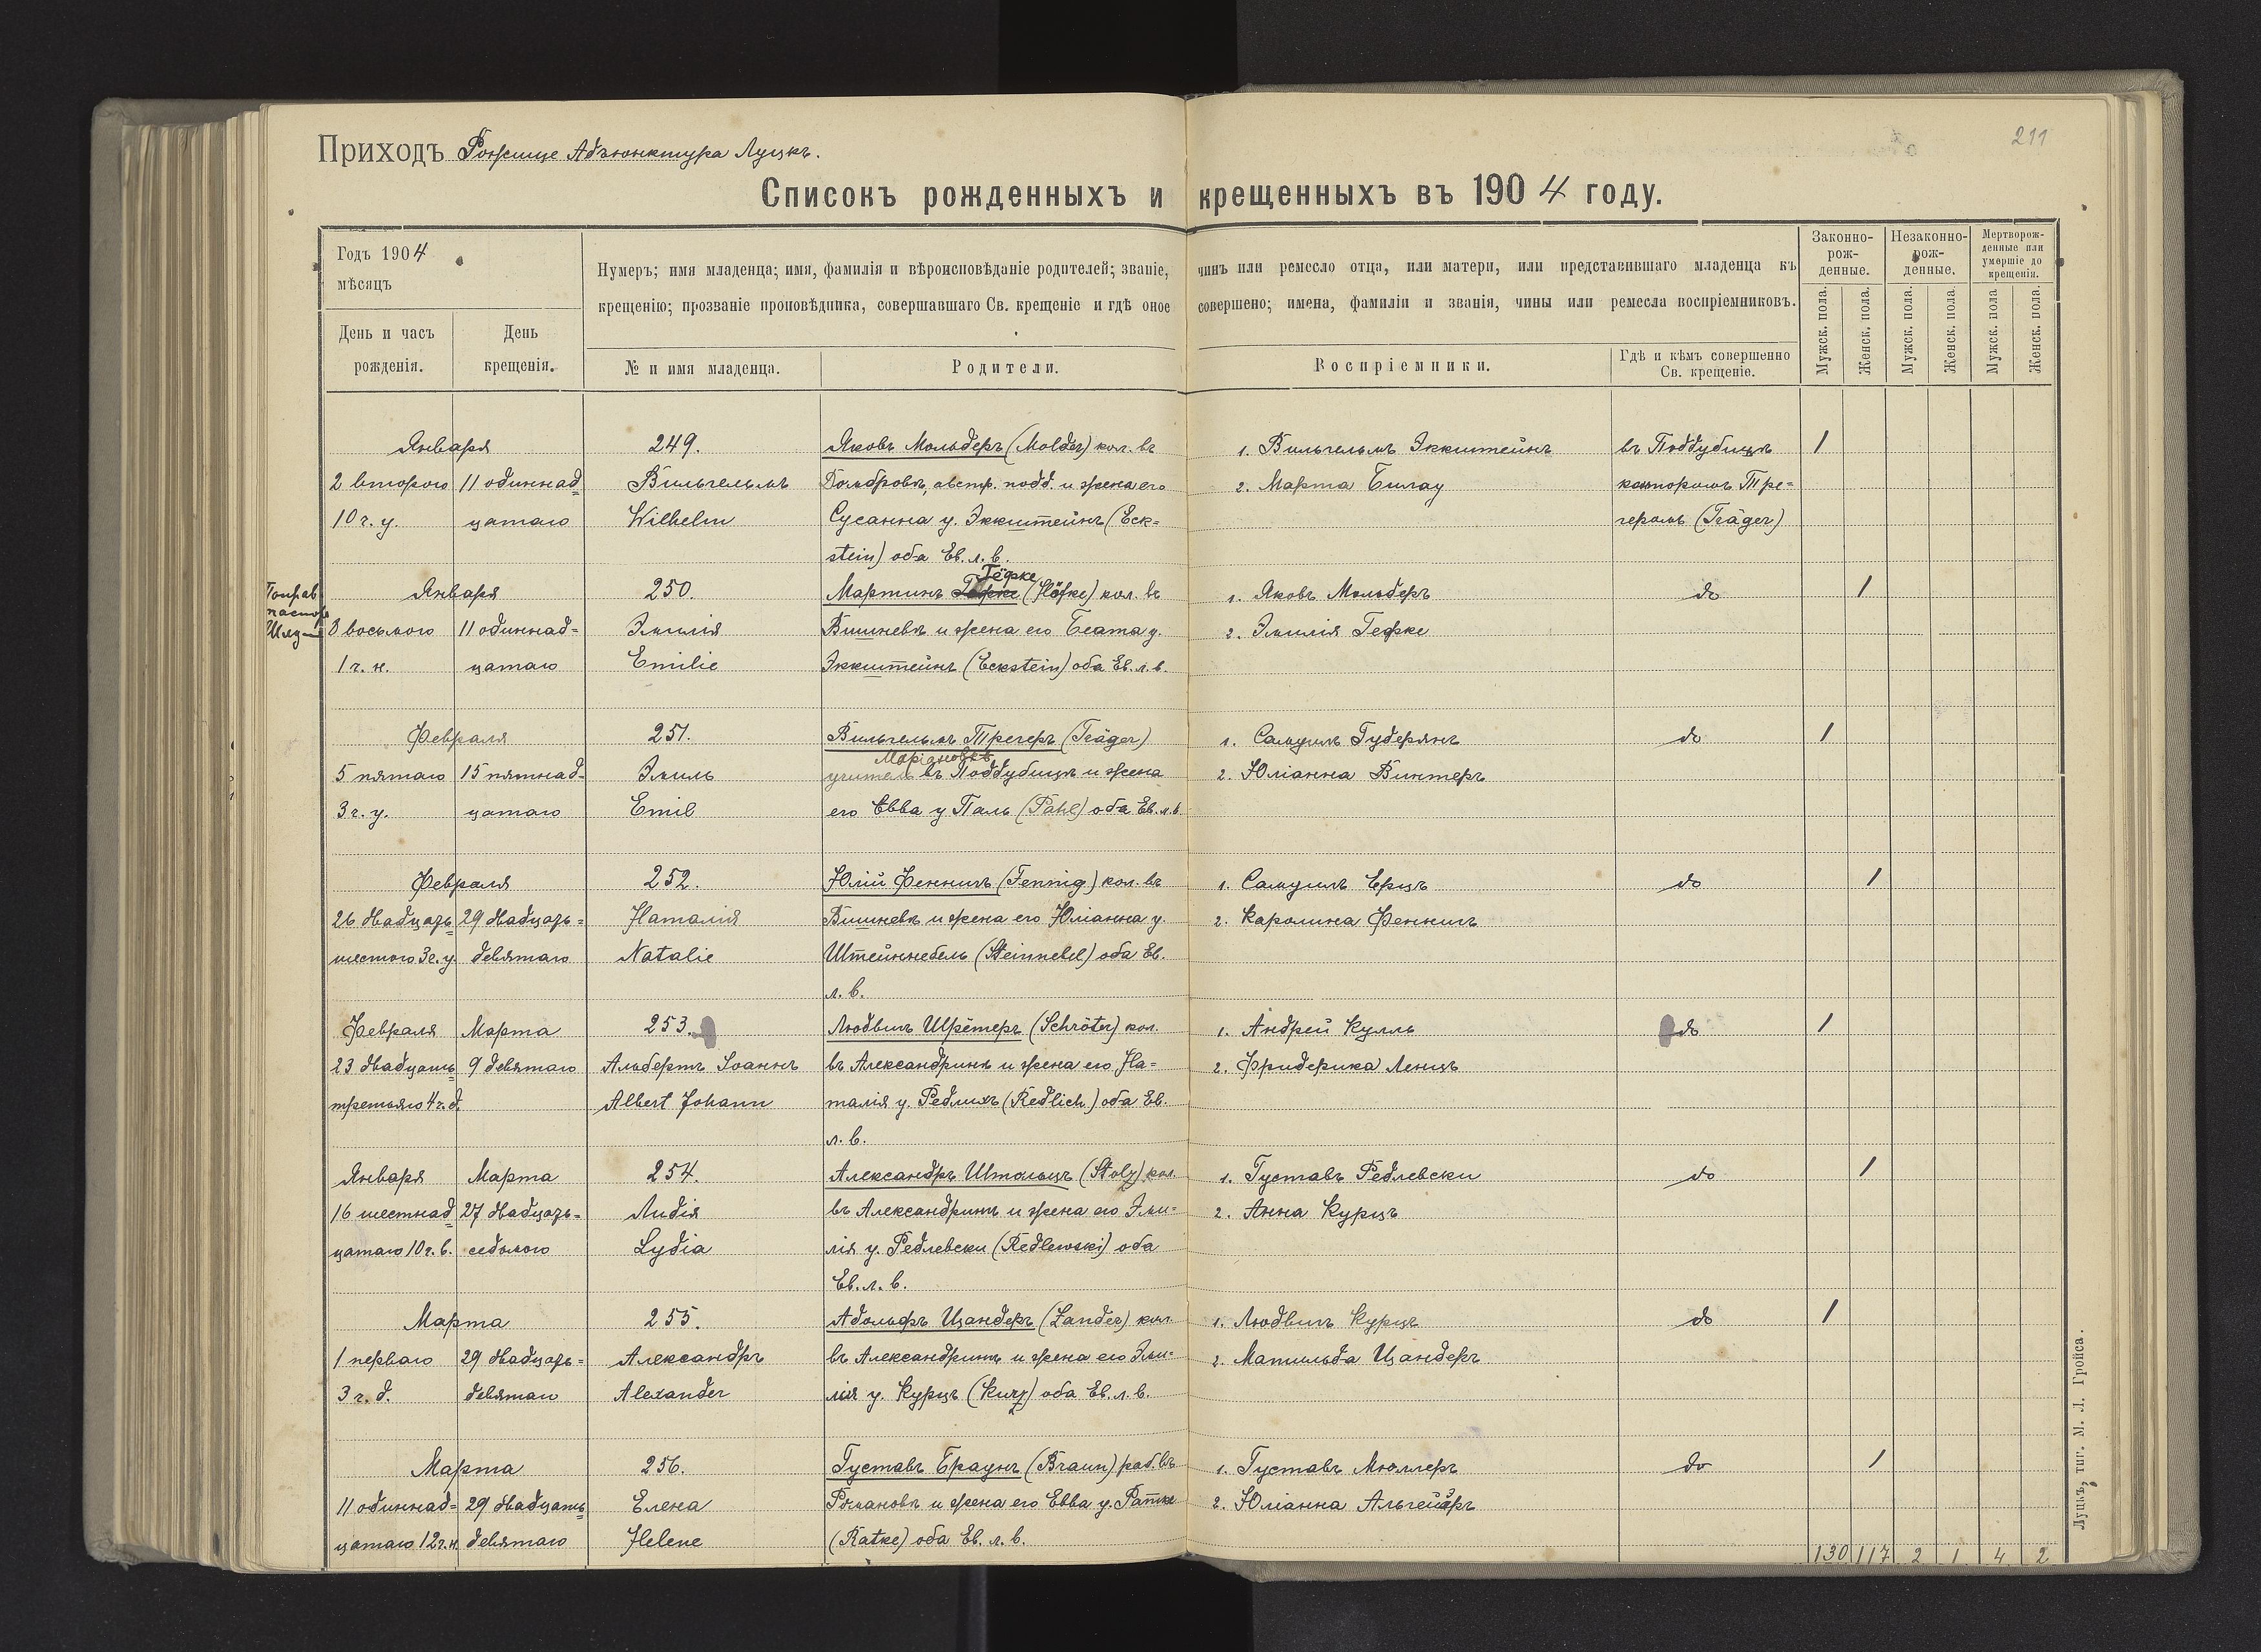 211
Приходъ Рожище Адъюнктура Луцкъ.
Списокъ рожденныхъ и крещенныхъ въ 1904 году.
Годъ 1904
мѣсяцъ
День и часъ рожденія.
День крещенія.
Нумеръ; имя младенца; имя, фамилія и вѣроисповѣданіе родителей; званіе, чинъ или ремесло отца, или матери, или представившаго младенца къ
крещенію; прозваніе проповѣдника, совершавшаго Св. крещеніе и гдѣ оное совершено; имена, фамиліи и званія, чины или ремесла воспріемниковъ.
№ и имя младенца.
Родители.
Воспріемники.
Гдѣ и кѣмъ совершенно Св. крещеніе.
Законно-рож-денные.
Незаконно-рож-денные.
Мертворож-денные или умершіе до крещенія.
Мужск. пола. Женск. пола. Мужск. пола. Женск. пола. Мужск. пола Женск. пола.
Января 249. Яковъ Мольдеръ (Molder) кол. въ 1. Вильгельмъ Эккштейнъ въ Поддубицѣ 1
2 второго 11 одиннад= Вильгельмъ Домбровѣ, австр. подд. и жена его 2. Марта Билау канторомъ Тре=
10 ч. у. цатаго Wilhelm Сусанна у. Эккштейнъ (Eck= геромъ (Träger)
stein) оба Ев. л. в.
Гёфке
Поправ
пастор
Января 250. Мартинъ (Höfke) кол. въ 1. Яковъ Мольдеръ до 1
8 восьмого 11 одиннад= Эмилія Вишневѣ и жена его Беата у. 2. Эмилія Гефке
1 ч. н. цатаго Emilie Эккштейнъ (Eckstein) оба Ев. л. в.
Февраля 251. Вильгельмъ Трегеръ (Träger) 1. Самуилъ Гудерянъ до 1
Маріановкѣ
5 пятаго 15 пятнад= Эмиль учитель въ Поддубицѣ и жена 2. Юліанна Винтеръ
3 ч. у. цатаго Emil его Евва у Паль (Pahl) оба Ев. л. в.
Февраля 252. Юлій Феннигъ (Fennig) кол. въ 1. Самуилъ Ерцъ до 1
26 двадцать 29 двадцать= Наталія Вишневѣ и жена его Юліанна у. 2. Каролина Феннигъ
шестого 3 ч. у. девятаго Natalie Штейннебель (Steinnebel) оба Ев.
л. в.
Февраля Марта 253. Людвигъ Шрётеръ (Schröter) кол. 1. Андрей Кулль до 1
23 двадцать 9 девятаго Альбертъ Іоаннъ въ Александринѣ и жена его На= 2. Фридерика Ленцъ
третьяго 4 ч. д. Albert Johann талія у. Редлихъ (Redlich) оба Ев.
л. в.
Января Марта 254. Александръ Штольцъ (Stolz) кол. 1. Густавъ Редлевски до 1
16 шестнад= 27 двадцать= Лидія въ Александринѣ и жена его Эми= 2. Анна Курцъ
цатаго 10 ч. в. седьмого Lydia лія у. Редлевски (Redlewski) оба
Ев. л. в.
Марта 255. Адольфъ Цандеръ (Zander) кол. 1. Людвигъ Курцъ до 1
1 перваго 29 двадцать= Александръ въ Александринѣ и жена его Эми= 2. Матильда Цандеръ
3 ч. д. девятаго Alexander лія у. Курцъ (Kurz) оба Ев. л. в.
Марта 256. Густавъ Браунъ (Braun) раб. въ 1. Густавъ Мюллеръ до 1
11 одиннад= 29 двадцать= Елена Романовѣ и жена его Евва у. Ратке 2. Юліанна
цатаго 12 ч. н. девятаго Helene (Ratke) оба Ев. л. в.
130 117 2 1 4 2
Луцкъ, тип. М. Л. Гройса.